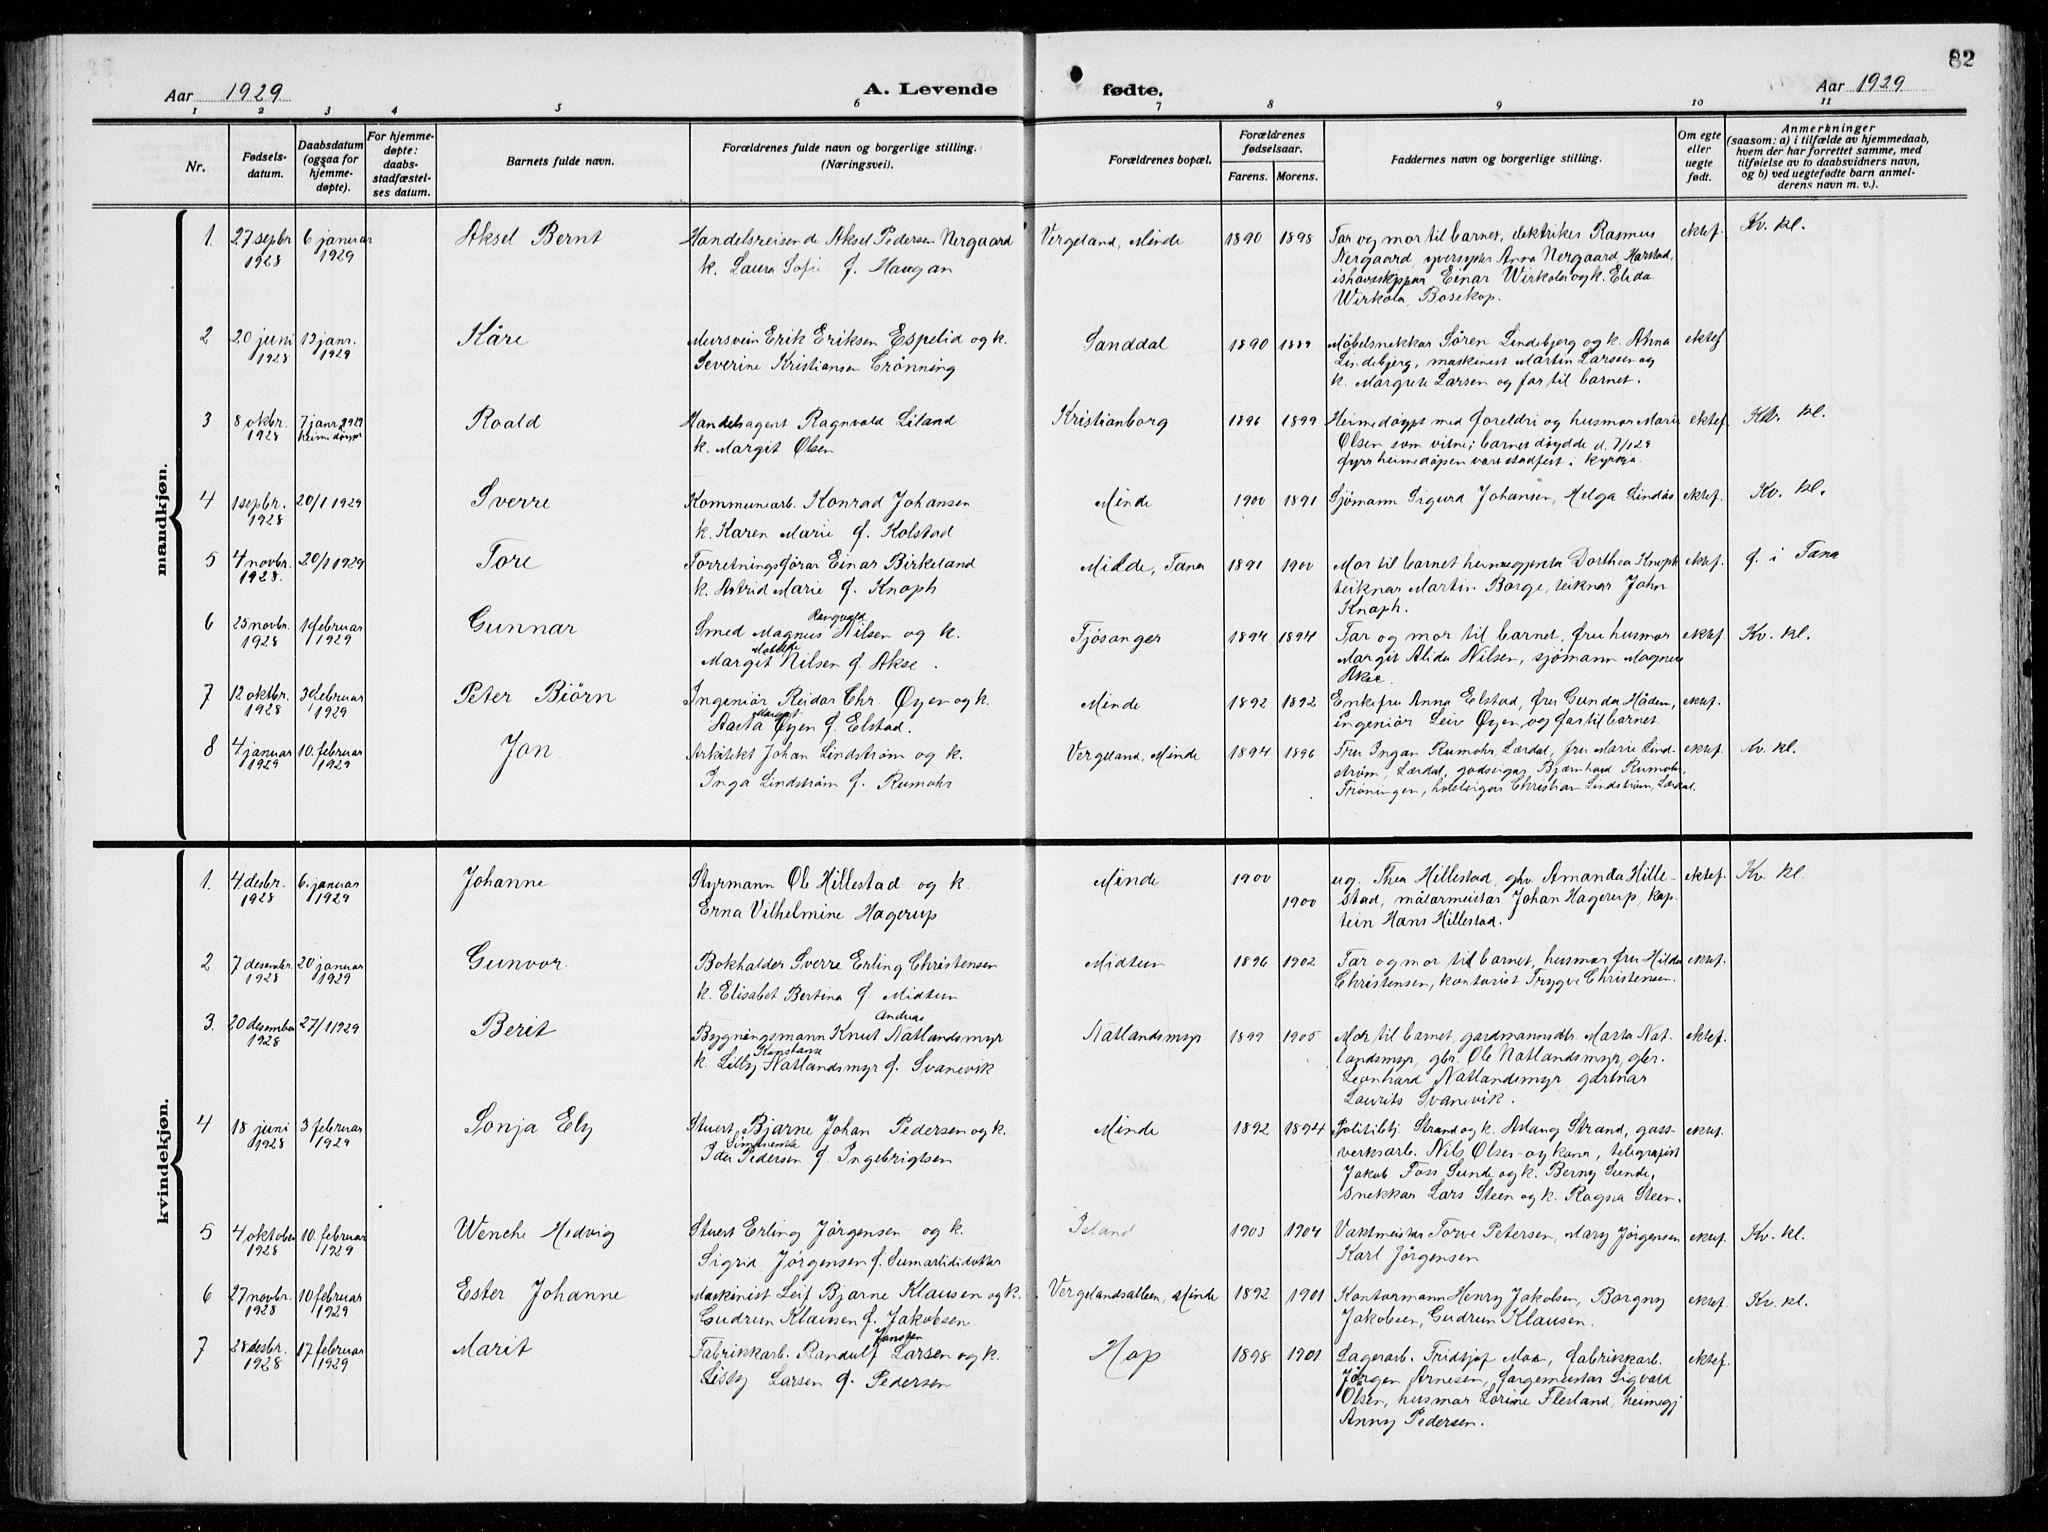 82
Aar 1929
A. Levende
fødte.
Aar 1929
1 2 3 4 5 6 7 8 9 10 11
Nr.
Fødsels-
datum.
Daabsdatum
(ogsaa for
hjemme-
døpte).
For hjemme-
døpte:
daabs-
stadfæstel-
ses datum.
Barnets fulde navn.
Forældrenes fulde navn og borgerlige stilling.
(Næringsvei).
Forældrenes bopæl.
Forældrenes
fødselsaar.
Farens. Morens.
Faddernes navn og borgerlige stilling.
Om egte
eller
uegte
født.
Anmerkninger
(saasom: a) i tilfælde av hjemmedaab,
hvem der har forrettet samme, med
tilføielse av to daabsvidners navn,
og b) ved uegtefødte barn anmel-
derens navn m. v.).
mandkjøn.
1. 27 sepbr. 1928
6 januar 1929
Aksel Bernt
Handelsreisende Aksel Pedersen Nergaard
k. Laura Sofie f. Haugan
Vergeland, Minde
1890 1898
Far og mor til barnet, elektriker Rasmus
Nergaard, Anna Nergaard, Harstad,
ishavsskipper Einar Wirkola og k. Elida
Wirkola, Bosekop.
ektef.
Kv. kl.
2 20 juni 1928
13 janr. 1929
Kåre
Mursvein Erik Eriksen Espelid og k.
Severine Kristiansen Grönning
Sanddal
1890 1889
Møbelsnekkar Sören Lindebjerg og k. Anna
Lindebjerg, maskinist Martin Larsen og
k. Margrete Larsen og far til barnet.
ektef
3 8 oktbr. 1928
7 janr 1929
heimedøypt
Roald
Handelsagent Ragnvald Liland
k. Margit Olsen
Kristianborg
1896 1899
Heimedøypt med foreldri og husmor Marie
Olsen som vitne; barnet døydde d. 7/1 29
fyrr heimedåpen vart stadfest i kyrkja.
ektef.
Kv. kl.
4 1 sepbr. 1928
20/1 1929
Sverre
Kommunearb. Konrad Johansen
k. Karen Marie f. Kolstad
Minde
1900 1891
Sjömann Sigurd Johansen, Helga Lindås
ektef.
Kv. kl.
5 4 novbr. 1928.
20/1 1929
Tore
Forretningsförar Einar Birkeland
k. Astrid Marie f. Knoph
Milde, Fana
1891 1900
Mor til barnet, Dorthea Knoph
teiknar Martin Borge, teiknar John
Knoph.
ektef.
f. i Fana
6 25 novbr. 1928
1 februar 1929
Gunnar
Rangvald
Smed Magnus Nilsen og k.
Margit Nilsen f. Akse.
Tjösanger
1894 1894
Far og mor til barnet, fru husmor
Margit Alida Nilsen, sjömann Magnus
Akse.
ektef.
Kv. kl.
7 12 oktbr. 1928
3 februar 1929
Peter Biörn
Ingeniör Reidar Chr. Øyen og k.
Margit
Aasta Øyen f. Elstad.
Minde
1892 1892
Enkefru Anna Elstad, fru Gunda Hådem,
ingeniör Leiv Øyen og far til barnet.
ektef.
8 4 januar 1929
10. februar 1929
Jon
Arkitekt Johan Lindström og k.
Inga Lindström f. Rumohr
Vergeland, Minde
1894 1896
Fru Ingan Rumohr, Lærdal, fru Marie Lind-
ström, Lærdal, godseigar Bjarnhard Rumohr,
Fröningen, hoteleigar Christian Lindström, Lærdal.
ektef.
Kv. kl.
kvindekjøn.
1. 4. desbr. 1928
6. januar 1929
Johanne
Styrmann Ole Hillestad og k.
Erna Vilhelmine Hagerup
Minde
1900 1900
ug. Thea Hillestad, ghv. Amanda Hille-
stad, målarmeistar Johan Hagerup, kap-
tein Hans Hillestad.
ektef.
Kv. kl.
2 7 desembr. 1928
20 januar 1929
Gunvor
Bokhalder Sverre Erling Christensen
k. Elisabet Bertina f. Midtun
Midtun
1896 1902
Far og mor til barnet, husmor fru Hilda
Christensen, kontorist Trygve Christensen.
ektef.
3. 20 desember 1928
27/1 1929
Berit
Andreas
Bygningsmann Knut Natlandsmyr
Konstanse
k. Lilly Natlandsmyr f. Svanevik
Natlandsmyr
1899 1905
Mor til barnet, gardmannsdtr. Marta Nat-
landsmyr, gbr. Ole Natlandsmyr, gbr.
Leonhard Natlandsmyr, gartnar
Laurits Svanevik.
ektef.
4 18 juni 1928
3 februar 1929
Sonja Ely
Stuert Bjarne Johan Pedersen og k.
Ida Pedersen f. Ingebrigtsen
Minde
1892 1894
Politibtj. Strand og k. Aslaug Strand, gass-
verksarb. Nils Olsen og kona, telegrafist
Jakob Foss Sunde og k. Berny Sunde,
snekkar Lars Steen og k. Ragna Steen.
ektef.
5 4 oktober 1928
10. februar 1929
Wenche Hedvig
Stuert Erling Jörgensen og k.
Sigrid Jörgensen f. Sumarlididottir
Island
1903 1904
Vaktmeistar Torve Petersen, Mary Jörgensen
Karl Jörgensen
ektef.
Kv. kl.
6 27 novbr. 1928
10 februar 1929
Ester Johanne
Maskinist Leif Bjarne Klausen og k.
Gudrun Klausen f. Jakobsen
Vergelandsalleen, Minde
1892 1901
Kontormann Henry Jakobsen, Borgny
Jakobsen, Gudrun Klausen.
ektef.
Kv. kl.
7 28 desbr. 1928
17 februar 1929
Marit
Fabrikkarb. Randulf Larsen og k.
Lisby Larsen f. Pedersen
Hop
1898 1901
Lagerarb. Fridtjof Moe, fabrikkarb.
Jörgen Arnesen, fargemeistar Sigvald
Olsen, husmor Lorine Flesland, heimegj
Anny Pedersen.
ektef.